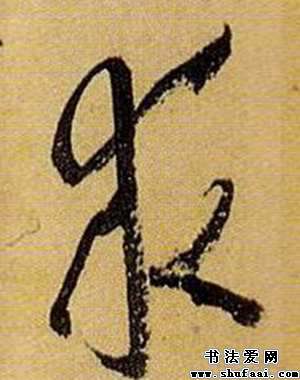 求
书法爱网
www.shufaai.com